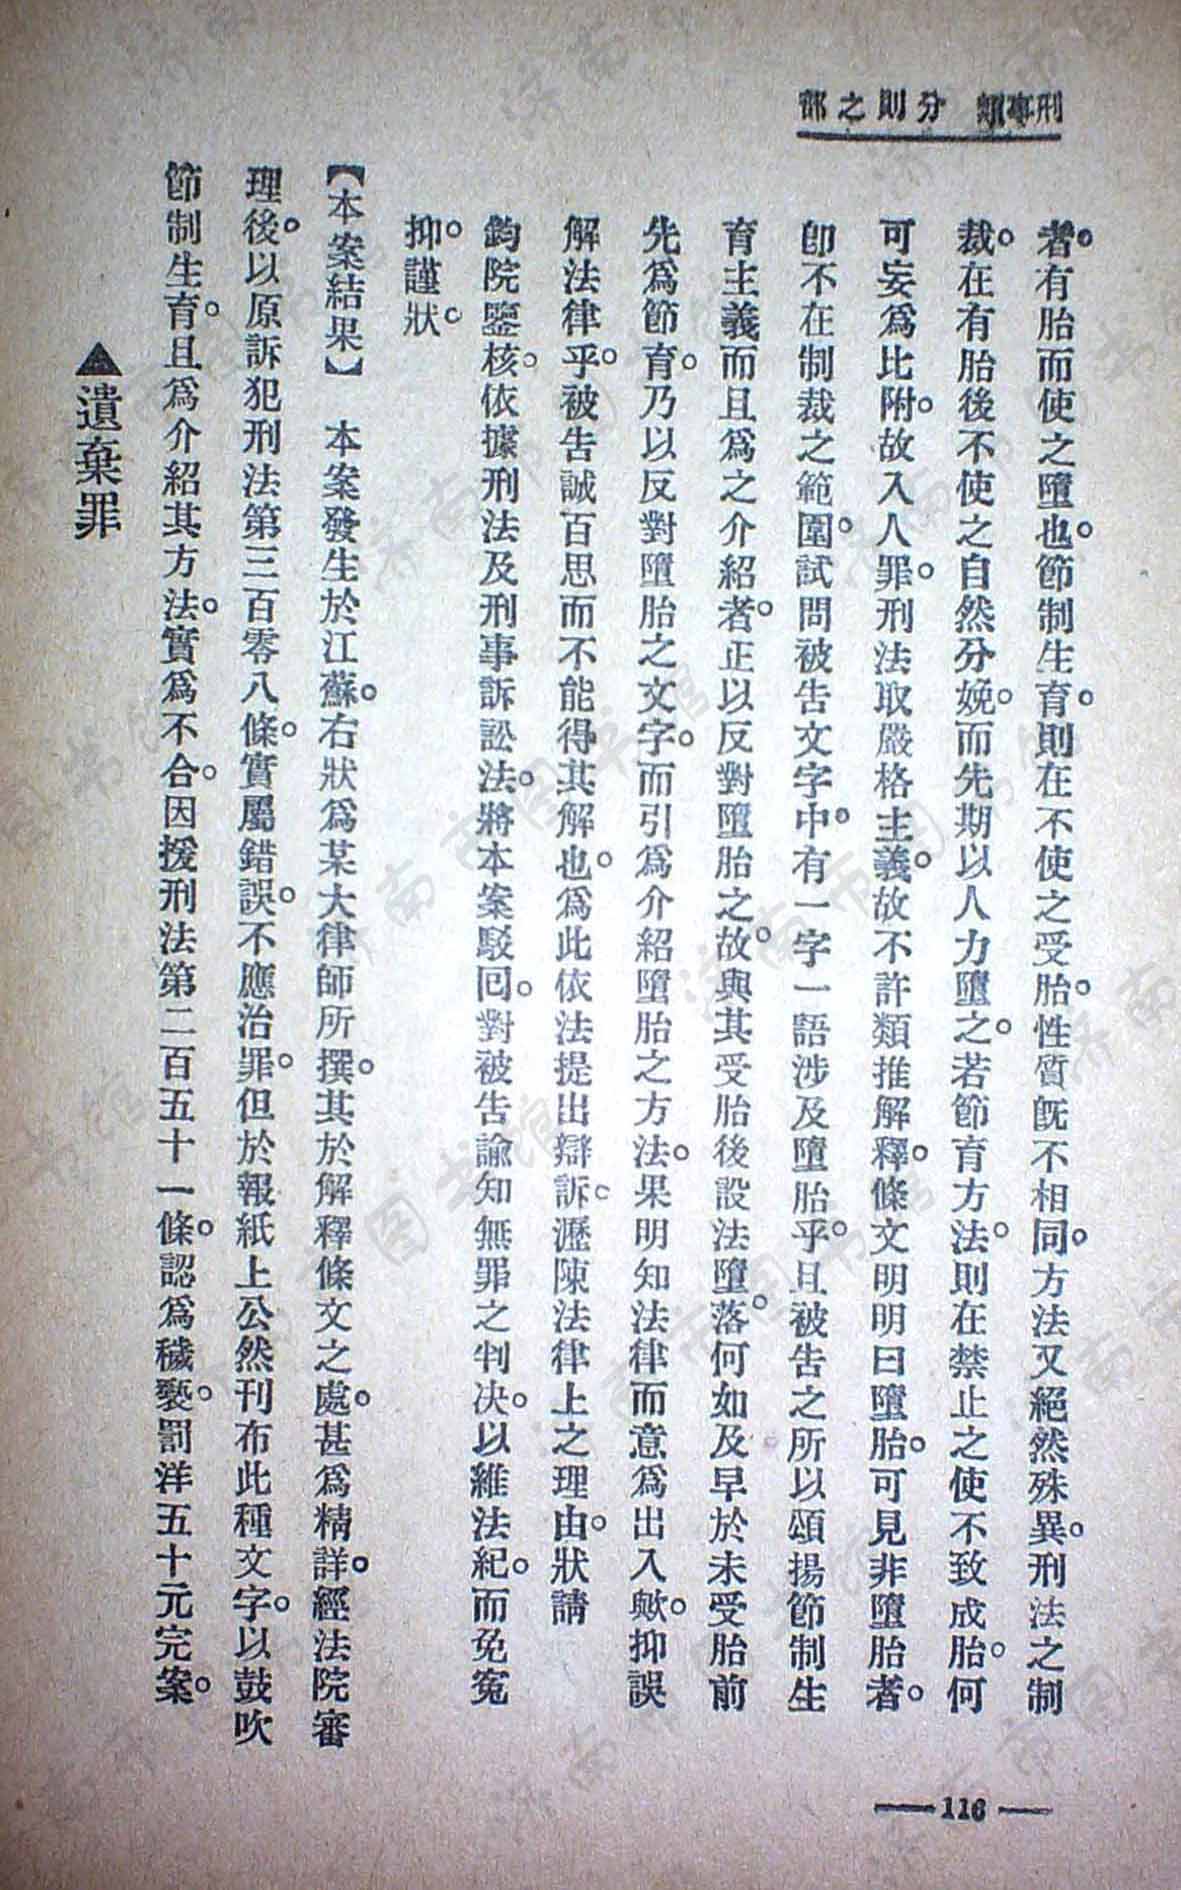 刑事類　分則之部
者。有胎而使之墮也。節制生育。則在不使之受胎。性質旣不相同。方法又絕然殊異。刑法之制
裁。在有胎後不使之自然分娩。而先期以人力墮之。若節育方法。則在禁止之使不致成胎。何
可妄爲比附。故入人罪。刑法取嚴格主義。故不許類推解釋。條文明明曰墮胎。可見非墮胎者。
卽不在制裁之範圍。試問被吿文字中。有一字一語涉及墮胎乎。且被吿之所以頌揚節制生
育主義而且爲之介紹者。正以反對墮胎之故。與其受胎後設法墮落。何如及早於未受胎前
先爲節育。乃以反對墮胎之文字。而引爲介紹墮胎之方法。果明知法律而意爲出入歟。抑誤
解法律乎。被吿誠百思而不能得其解也。爲此依法提出辯訴。瀝陳法律上之理由。狀請
鈞院鑒核。依據刑法及刑事訴訟法。將本案駁囘。對被吿諭知無罪之判決。以維法紀。而免冤
抑。謹狀。
【本案結果】　本案發生於江蘇。右狀爲某大律師所撰。其於解釋條文之處。甚爲精詳。經法院審
理後。以原訴犯刑法第三百零八條。實屬錯誤。不應治罪。但於報紙上公然刊布此種文字。以鼓吹
節制生育。且爲介紹其方法。實爲不合。因援刑法第二百五十一條。認爲穢褻。罰洋五十元完案。
▲遺棄罪
116
济南市图书馆